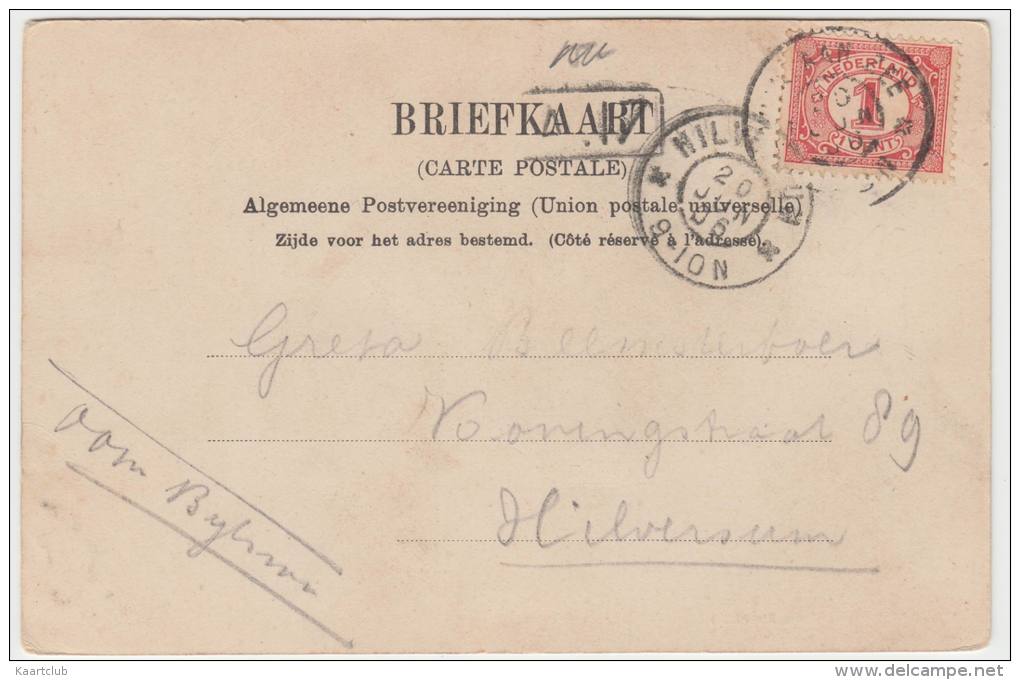 BRIEFKAART
(CARTE POSTALE)
Algemeene Postvereeniging (Union postale universelle)
Zijde voor het adres bestemd. (Côté réservé à l'adresse).
NEDERLAND
1
1 CENT
20
JUN
06
Greta Beemsterboer
Koningstraat 89
Hilversum
oom
Kaartclub
www.delcampe.net